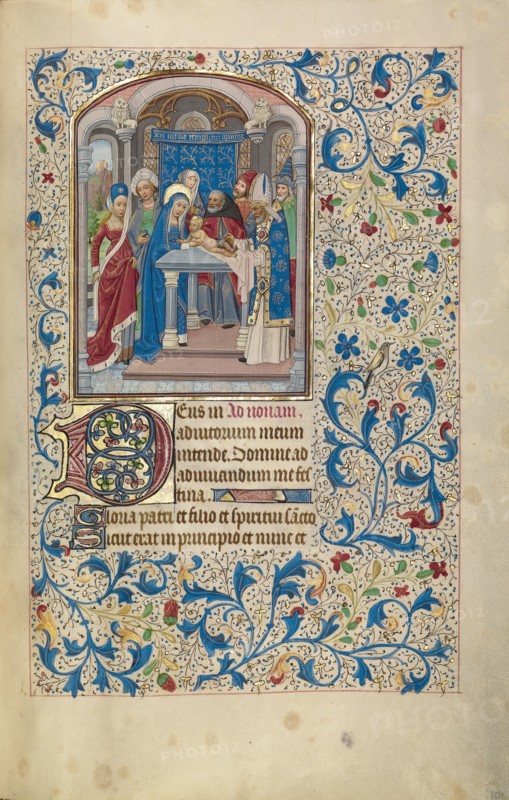 Eus in Ad nonam.
adiutorium meum
intende. Domine ad
adiuuandum me fes
tina.
Gloria patri et filio et spiritui sancto
sicut erat in principio et nunc et
PHOTO12